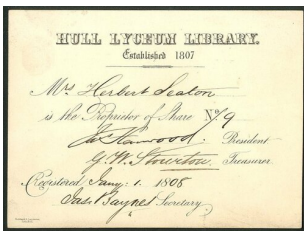 HULL LYCEUM LIBRARY.
Established 1807
Mr. Herbert Seaton
is the Proprietor of Share No. 9
President
G. W. Treasurer
Registered Jany. 1. 1808
Jas. Baynes Secretary